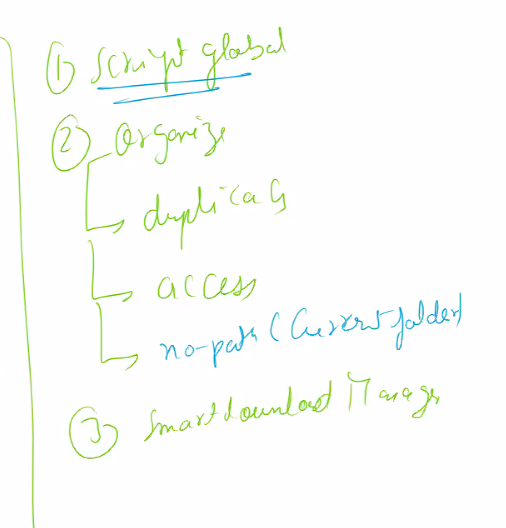 ① Script global
② Organize
duplicacs
access
no-path (Current folder)
③ Smart download Manager